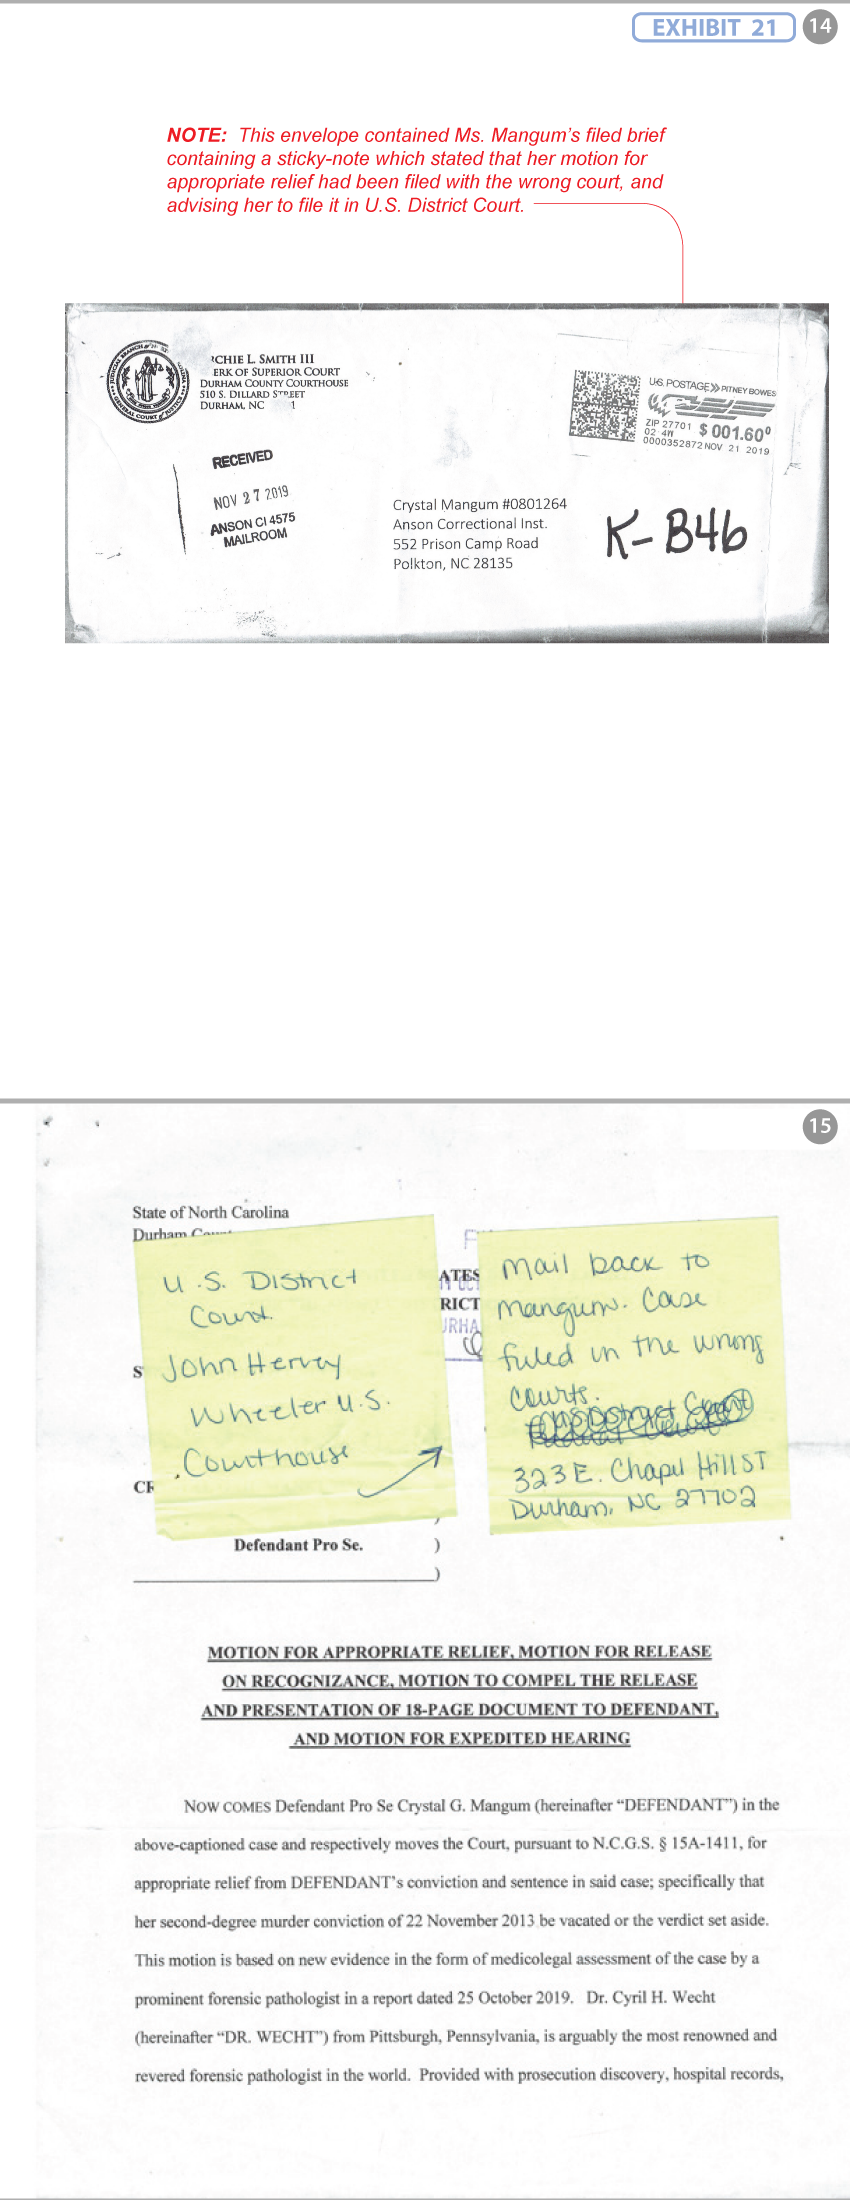 EXHIBIT 21
14
NOTE: This envelope contained Ms. Mangum's filed brief
containing a sticky-note which stated that her motion for
appropriate relief had been filed with the wrong court, and
advising her to file it in U.S. District Court.
CHIE L. SMITH III
ERK OF SUPERIOR COURT
DURHAM COUNTY COURTHOUSE
510 S. DILLARD STREET
DURHAM, NC 1
RECEIVED
NOV 27 2019
ANSON CI 4575
MAILROOM
U.S. POSTAGE>> PITNEY BOWES
ZIP 27701
02 4W
$ 001.60⁰
0000352872 NOV 21 2019
Crystal Mangum #0801264
Anson Correctional Inst.
552 Prison Camp Road
Polkton, NC 28135
K-B46
15
State of North Carolina
Durham
U.S. District
Court.
John Hervey
Wheeler U.S.
Courthouse
ATES
RICT
URHA
S
CR
mail back to
mangum. Case
fuled in the wrong
courts.
323 E. Chapel Hill ST
Durham, NC 27702
Defendant Pro Se. )
)
MOTION FOR APPROPRIATE RELIEF, MOTION FOR RELEASE
ON RECOGNIZANCE, MOTION TO COMPEL THE RELEASE
AND PRESENTATION OF 18-PAGE DOCUMENT TO DEFENDANT,
AND MOTION FOR EXPEDITED HEARING
NOW COMES Defendant Pro Se Crystal G. Mangum (hereinafter “DEFENDANT”) in the
above-captioned case and respectively moves the Court, pursuant to N.C.G.S. § 15A-1411, for
appropriate relief from DEFENDANT's conviction and sentence in said case; specifically that
her second-degree murder conviction of 22 November 2013 be vacated or the verdict set aside.
This motion is based on new evidence in the form of medicolegal assessment of the case by a
prominent forensic pathologist in a report dated 25 October 2019. Dr. Cyril H. Wecht
(hereinafter “DR. WECHT”) from Pittsburgh, Pennsylvania, is arguably the most renowned and
revered forensic pathologist in the world. Provided with prosecution discovery, hospital records,